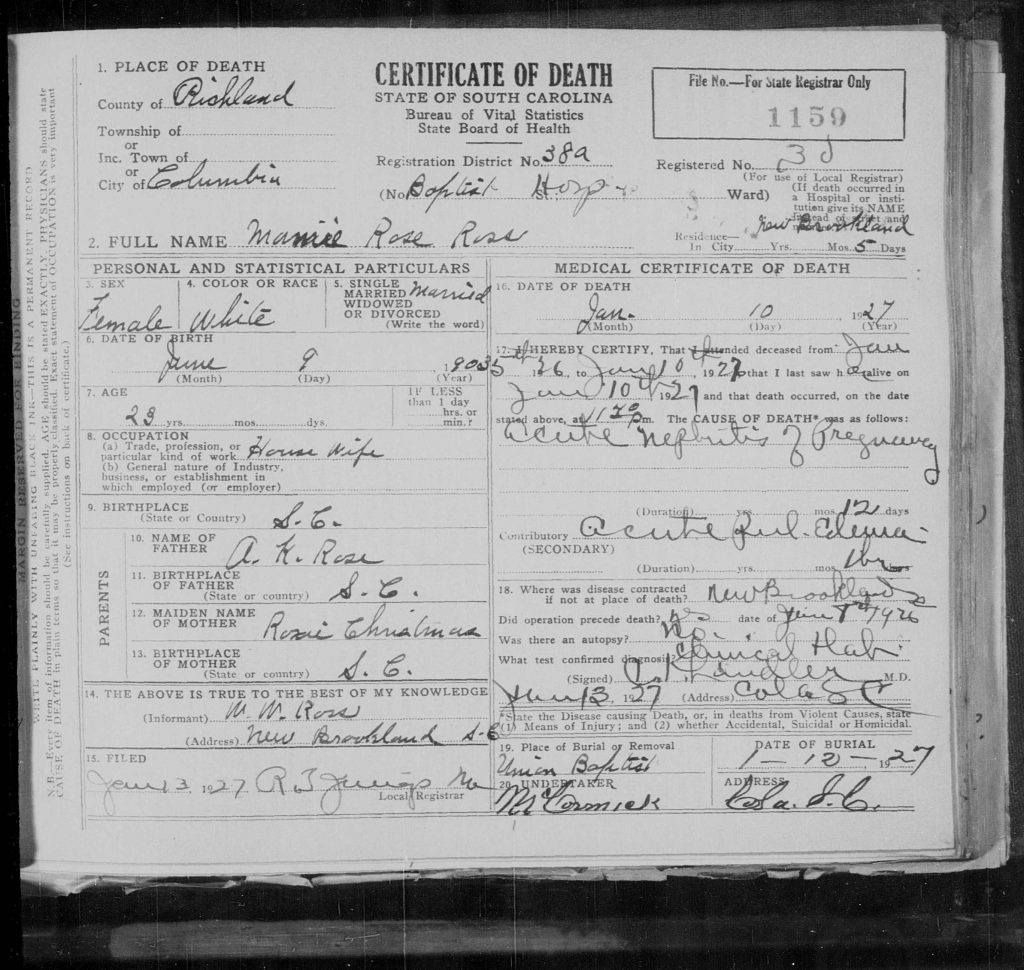 1. PLACE OF DEATH
County of Richland
Township of
or
Inc. Town of
or
City of Columbia
CERTIFICATE OF DEATH
STATE OF SOUTH CAROLINA
Bureau of Vital Statistics
State Board of Health
Registration District No. 38a
(No. Baptist St. Hosp Ward)
File No.—For State Registrar Only
1159
Registered No.
(For use of Local Registrar)
(If death occurred in
a Hospital or insti-
tution give its NAME
instead of street and
2. FULL NAME Mamie Rose Ross
Residence— New Brookland
In City Yrs. Mos. 5 Days
PERSONAL AND STATISTICAL PARTICULARS
3. SEX
Female
4. COLOR OR RACE
White
5. SINGLE
MARRIED
WIDOWED
OR DIVORCED
(Write the word)
Married
6. DATE OF BIRTH
June 9 1903
(Month) (Day) (Year)
7. AGE
23 yrs. mos. dys.
IF LESS
than 1 day
hrs. or
min.?
8. OCCUPATION
(a) Trade, profession, or
particular kind of work House Wife
(b) General nature of Industry,
business, or establishment in
which employed (or employer)
9. BIRTHPLACE
(State or Country) S.C.
PARENTS
10. NAME OF
FATHER A. K. Rose
11. BIRTHPLACE
OF FATHER
(State or country) S.C.
12. MAIDEN NAME
OF MOTHER Rosie Christmas
13. BIRTHPLACE
OF MOTHER
(State or country) S.C.
14. THE ABOVE IS TRUE TO THE BEST OF MY KNOWLEDGE
(Informant) W. W. Ross
(Address) New Brookland S.C
15. FILED
Jan 13 1927
Local Registrar
MEDICAL CERTIFICATE OF DEATH
16. DATE OF DEATH
Jan. 10 1927
(Month) (Day) (Year)
17. I HEREBY CERTIFY, That I attended deceased from Jan
5th 26, to Jany 10, 1927 that I last saw her alive on
Jany 10th 1927 and that death occurred, on the date
stated above, at m. The CAUSE OF DEATH* was as follows:
acute Nephritis of Pregnancy
(Duration) yrs. mos. 12 days
Contributory acute Pul. Edema
(SECONDARY)
(Duration) yrs. mos.
18. Where was disease contracted
if not at place of death? New Brookland
Did operation precede death? date of 1926
Was there an autopsy? No.
What test confirmed diagnosis? Clinical & Lab.
(Signed) M.D.
13, 1927 (Address) Cola S C
*State the Disease causing Death, or, in deaths from Violent Causes, state
(1) Means of Injury; and (2) whether Accidental, Suicidal or Homicidal.
19. Place of Burial or Removal
Union Baptist
DATE OF BURIAL
1-12-1927
20. UNDERTAKER
McCormick
ADDRESS
Cola. S.C.
MARGIN RESERVED FOR BINDING
WRITE PLAINLY WITH UNFADING BLACK INK—THIS IS A PERMANENT RECORD
N. B.—Every item of information should be carefully supplied. AGE should be stated EXACTLY. PHYSICIANS should state
CAUSE OF DEATH in plain terms so that it may be properly classified. Exact statement of OCCUPATION is very important
(See instructions on back of certificate.)